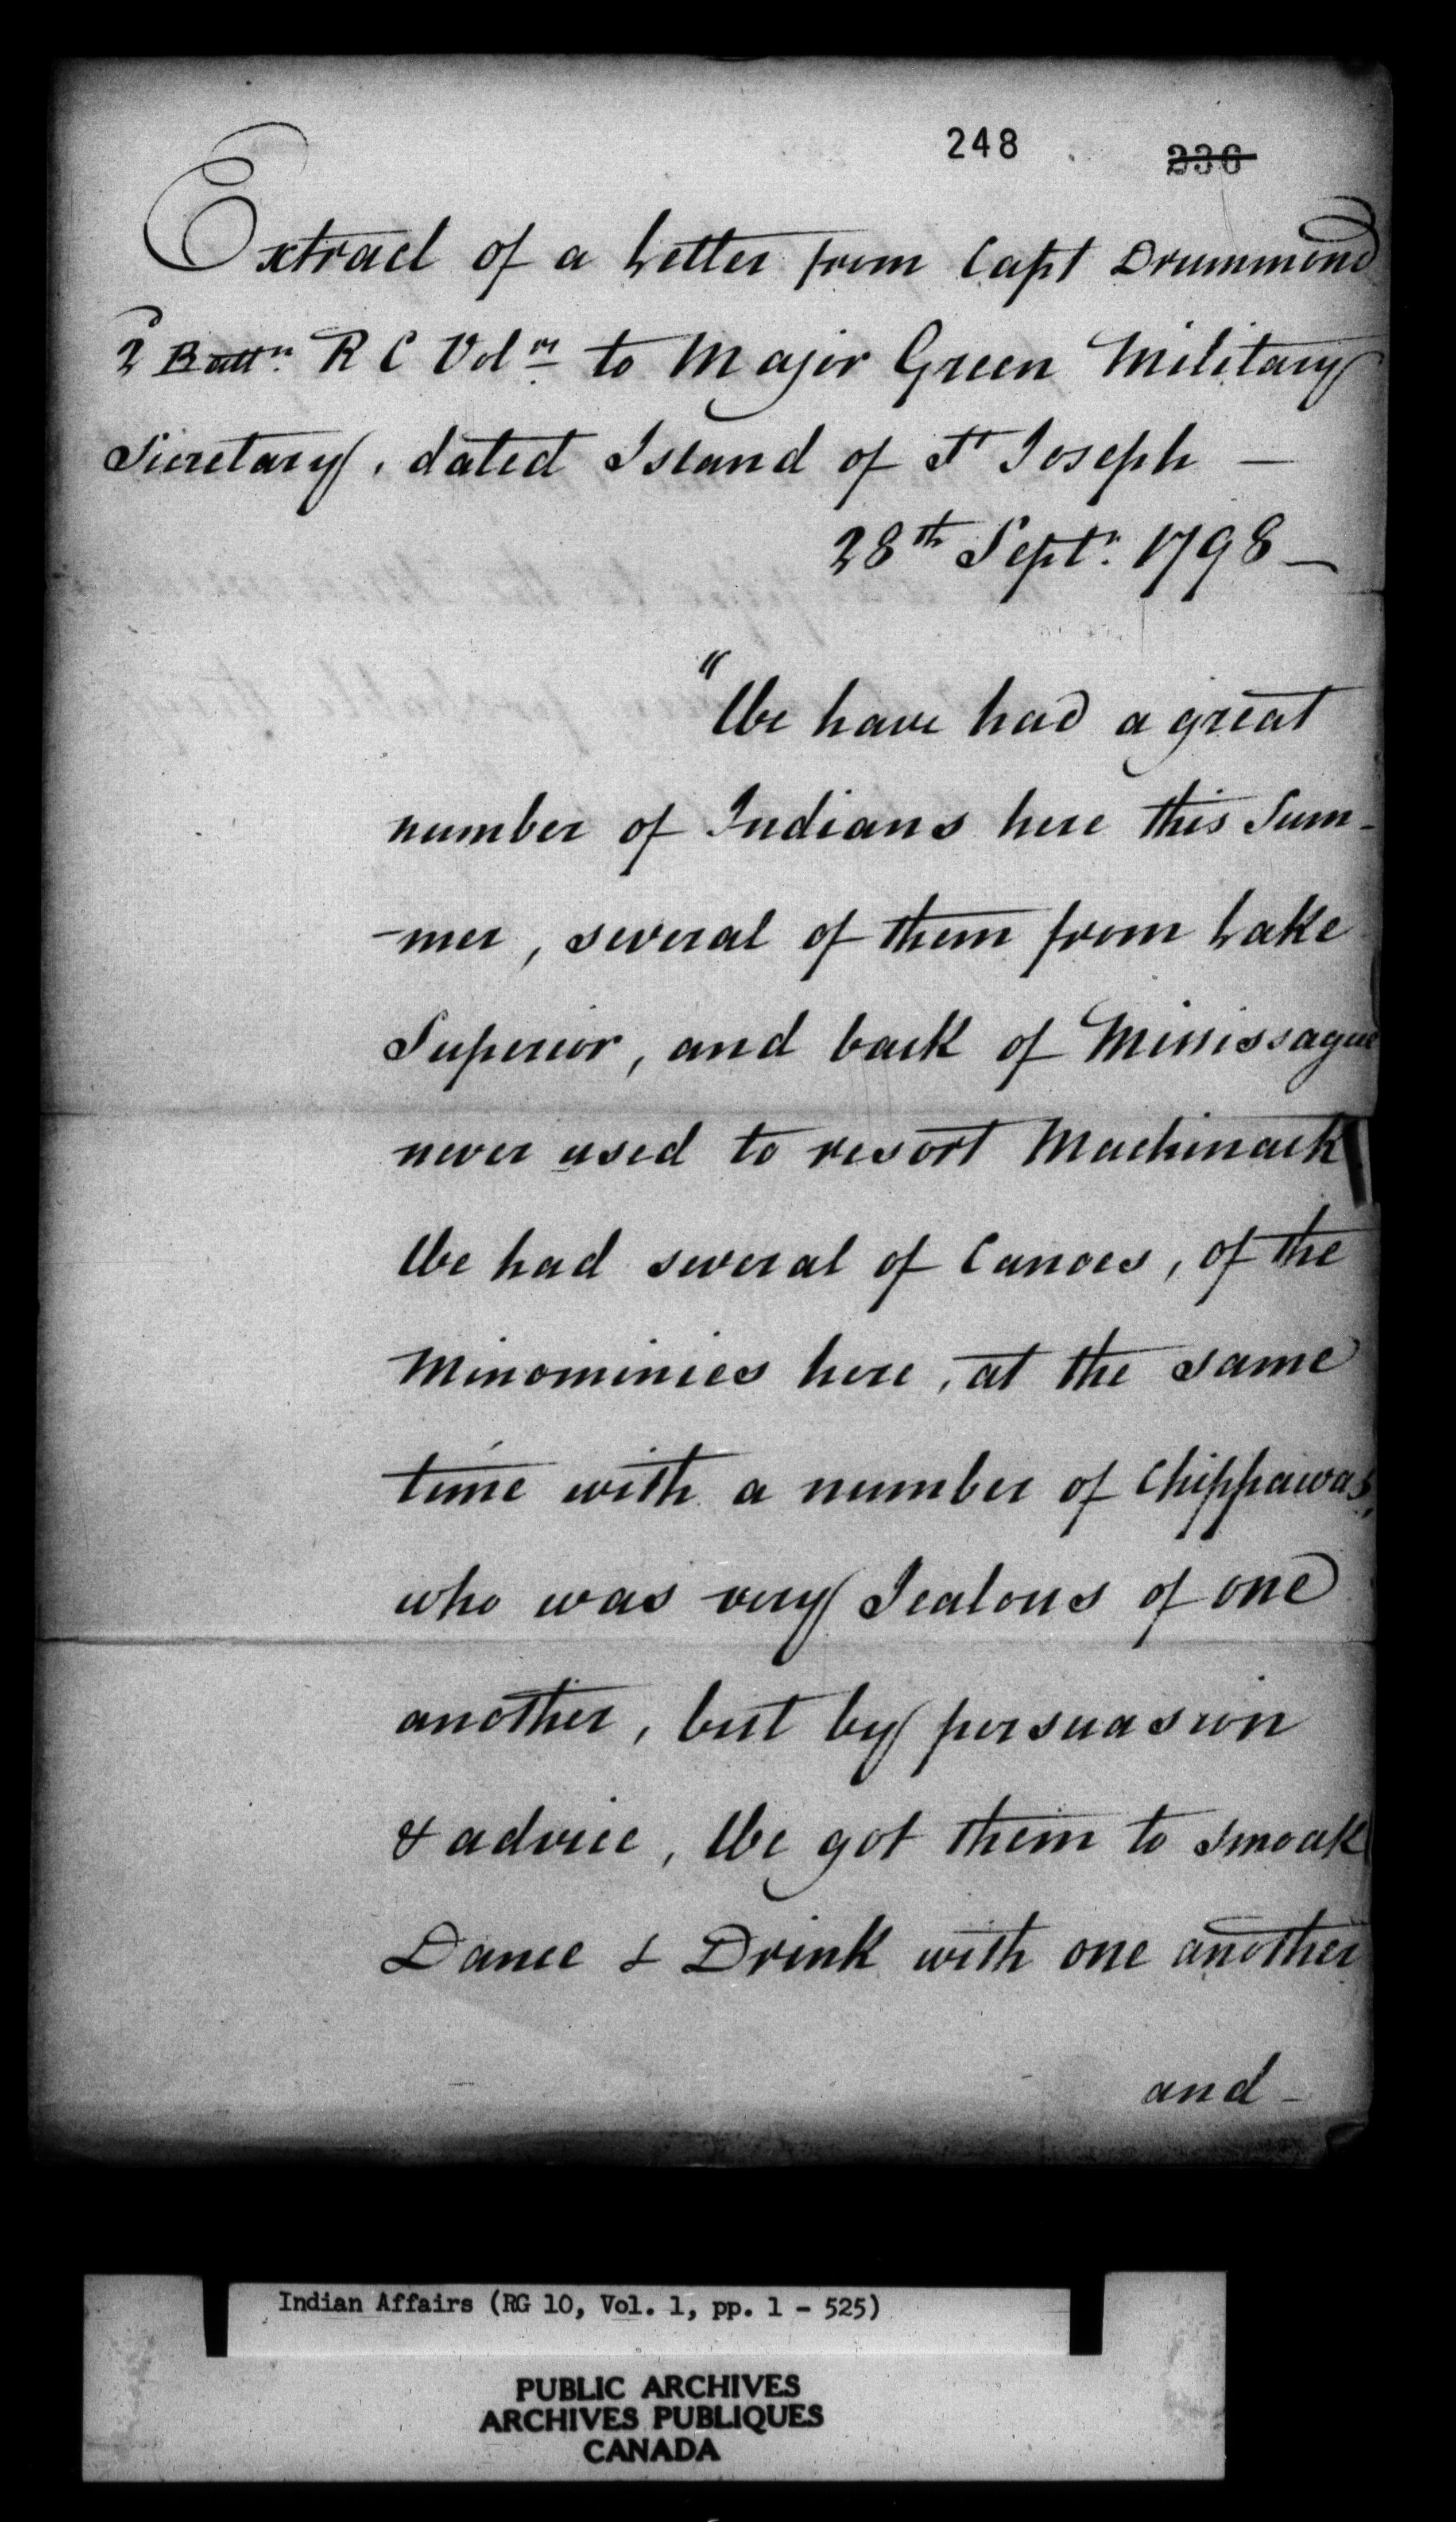 248 236
Extract of a Letter from Capt Drummond
2d Battn. R C Voln to Major Green Military
Secretary, dated Island of St Joseph —
28th Septr. 1798 —
"We have had a great
number of Indians here this Sum-
-mer, several of them from Lake
Superior, and back of Missisague
never used to resort Machinack
We had several of Canoes, of the
Minominies here, at the same
time with a number of Chippawas,
who was very Jealous of one
another, but by persuasion
& advice, We got them to smoak
Dance & Drink with one another
and -
Indian Affairs (RG 10, Vol. 1, pp. 1 - 525)
PUBLIC ARCHIVES
ARCHIVES PUBLIQUES
CANADA